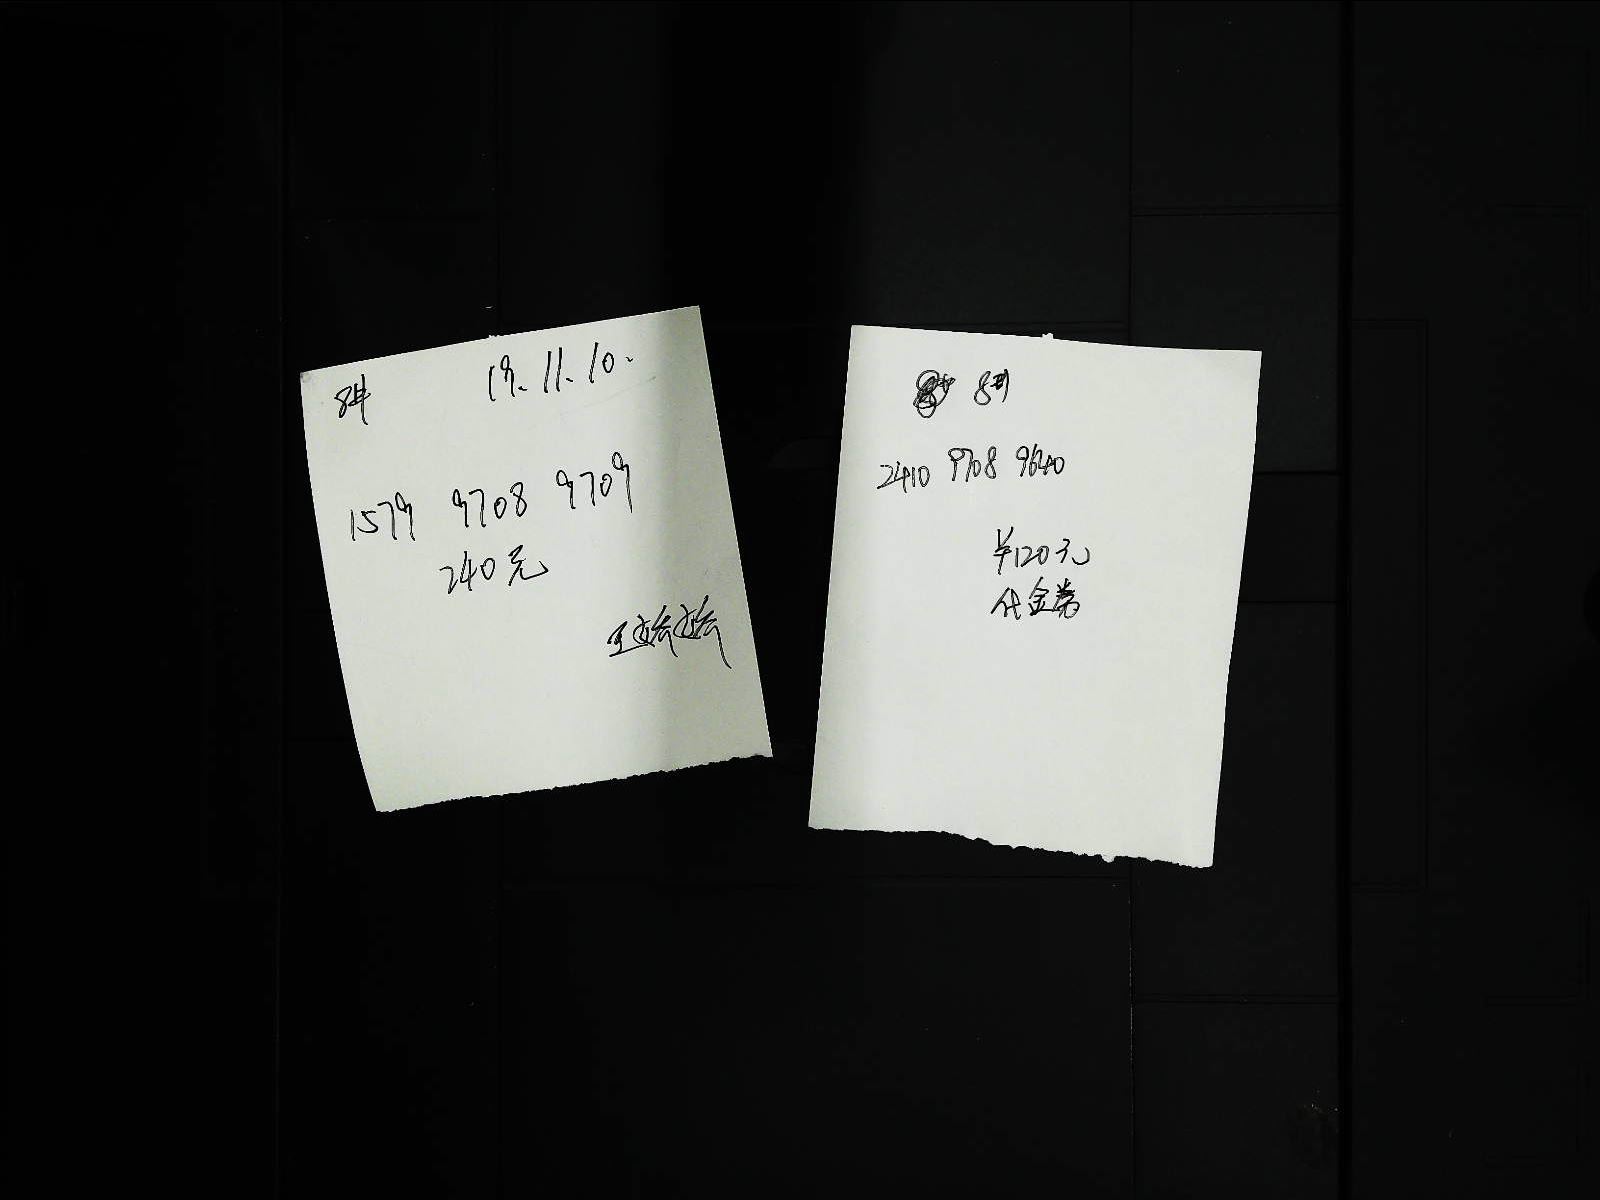 8# 19.11.10.
1579 9708 9709
240元
8#
2410 9708 9640
¥120元
代金券